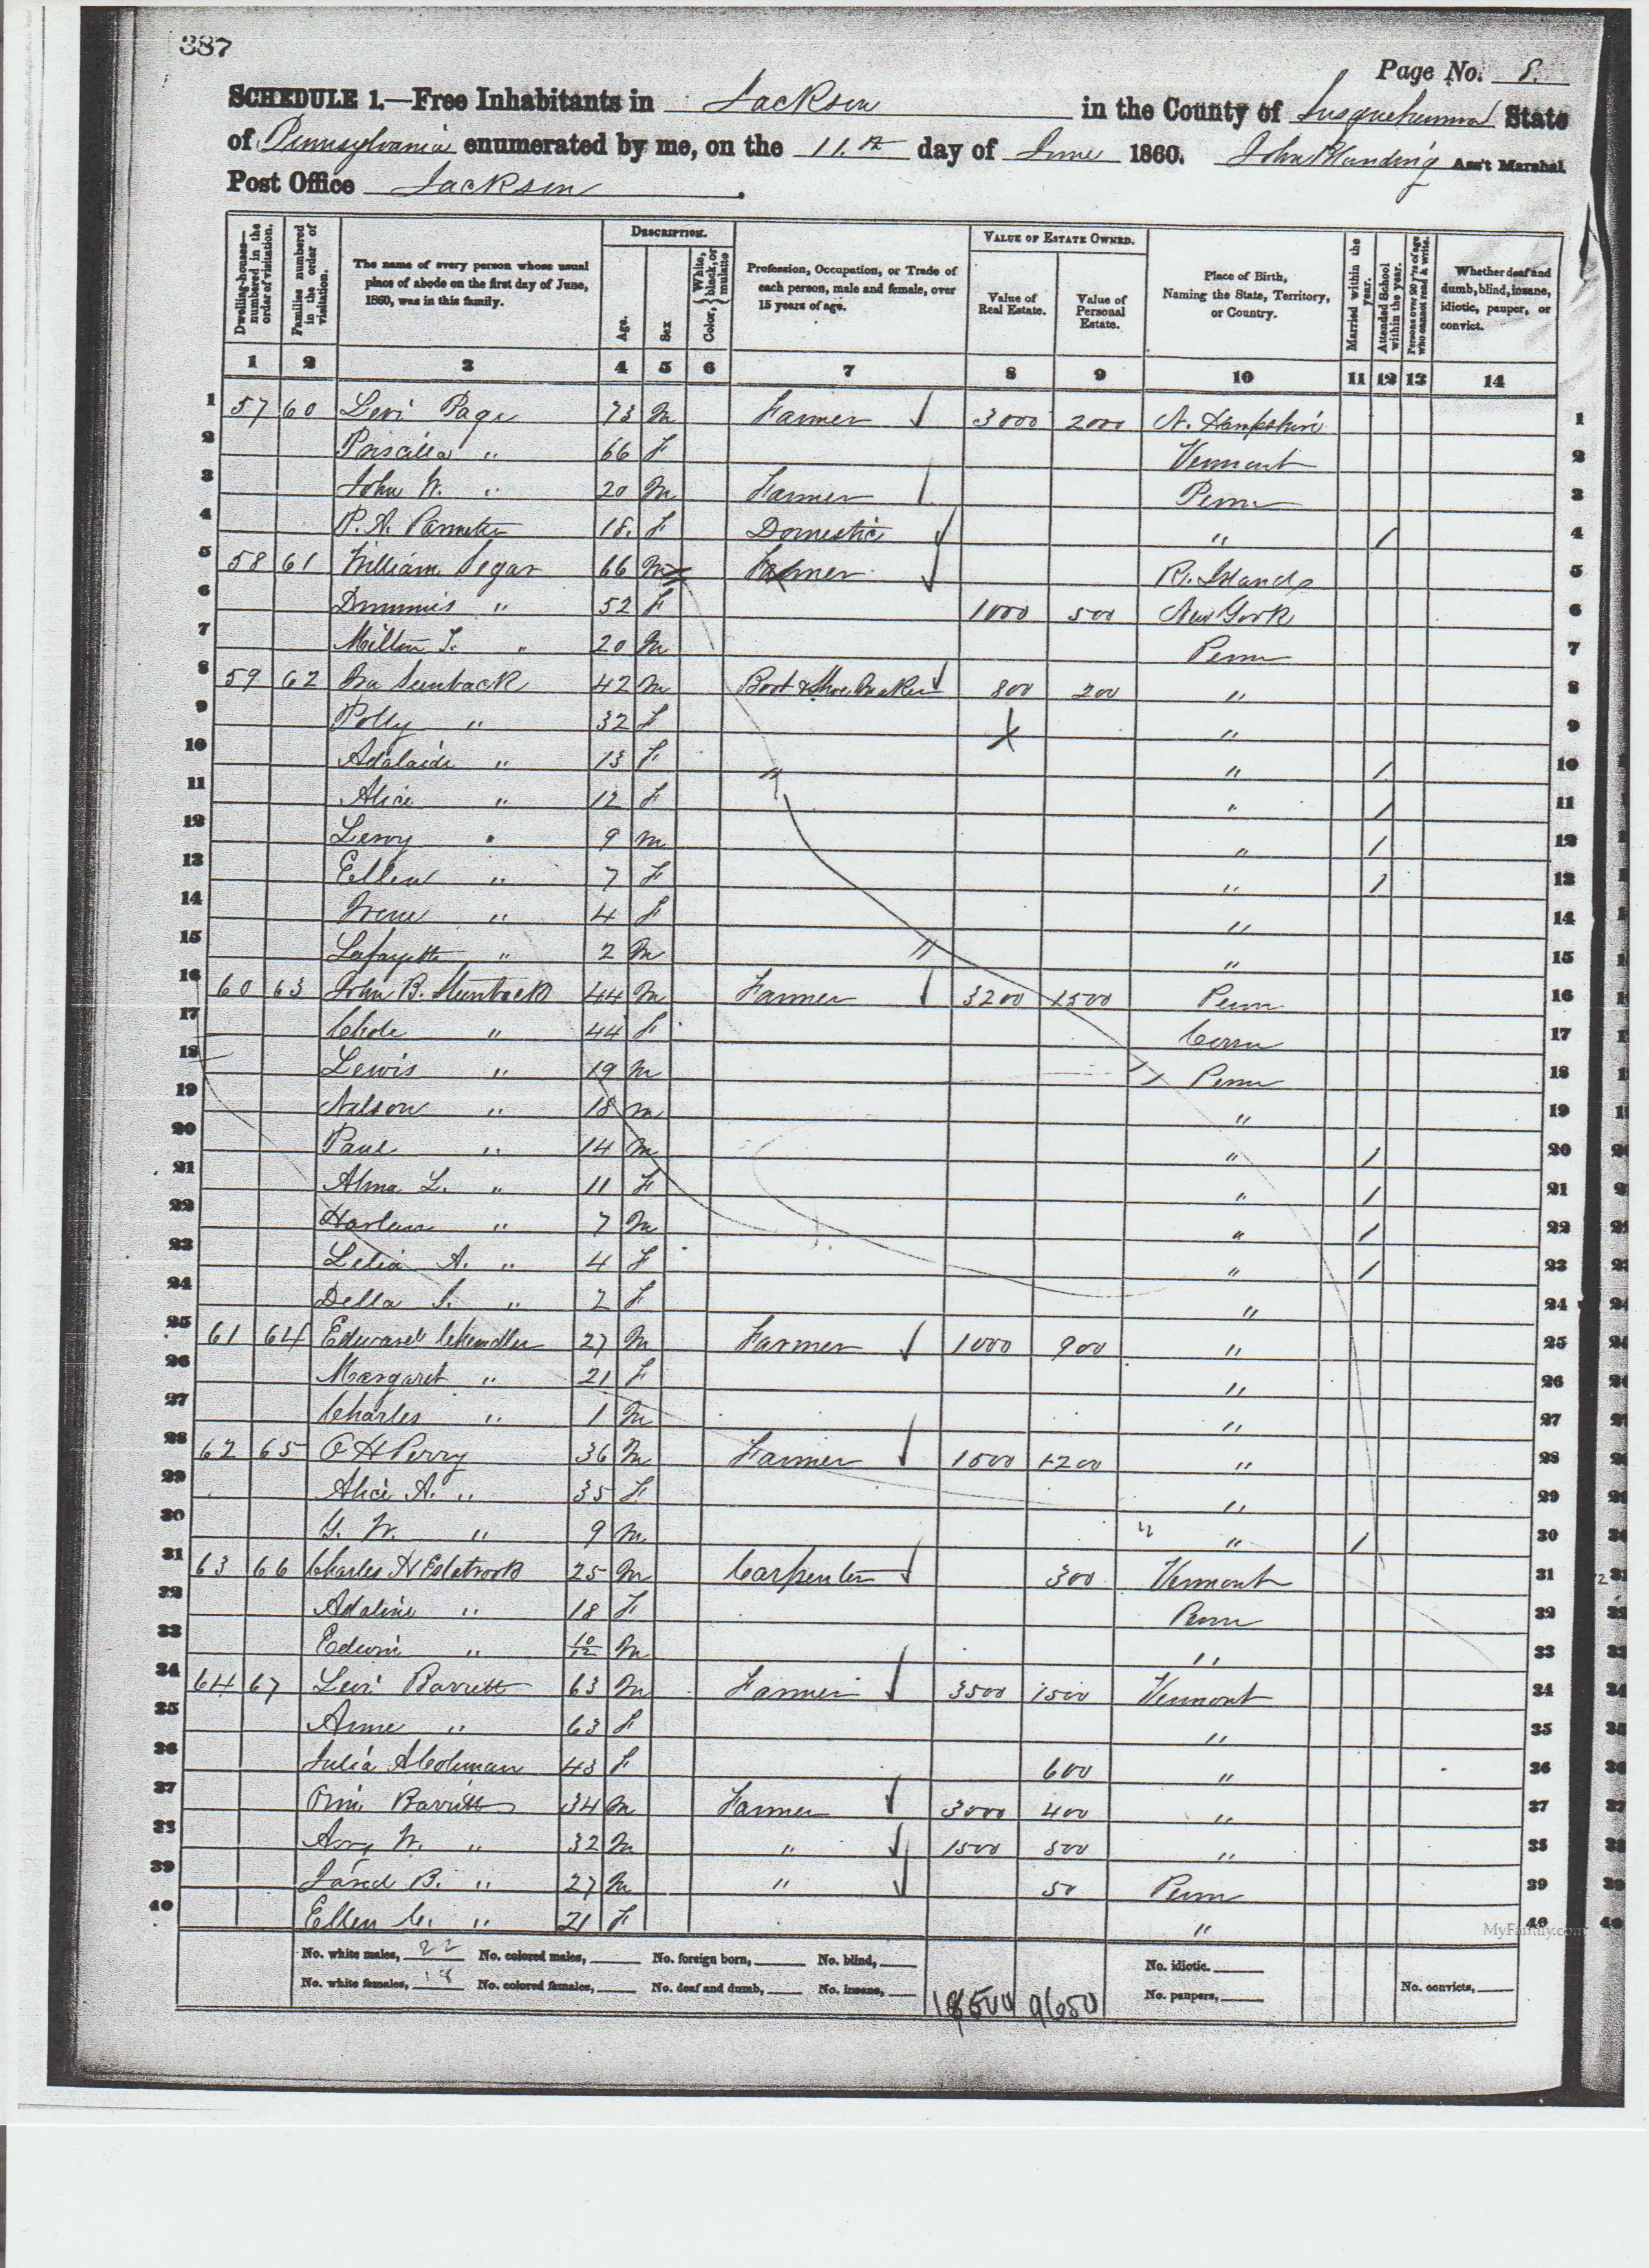 387
Page No. 8.
SCHEDULE 1.—Free Inhabitants in Jackson in the County of Susquehanna State
of Pennsylvania enumerated by me, on the 11.th day of June 1860. Ass't Marshal
Post Office Jackson.
Dwelling-houses—numbered in the order of visitation. Families numbered in the order of visitation. The name of every person whose usual place of abode on the first day of June, 1860, was in this family. DESCRIPTION. Age. Sex Color, {White, black, or mulatto Profession, Occupation, or Trade of each person, male and female, over 15 years of age. VALUE OF ESTATE OWNED. Value of Real Estate. Value of Personal Estate. Place of Birth, Naming the State, Territory, or Country. Married within the year. Attended School within the year. Persons over 20 y'rs of age who cannot read & write. Whether deaf and dumb, blind, insane, idiotic, pauper, or convict.
1 2 3 4 5 6 7 8 9 10 11 12 13 14
1 57 60 Levi Page 73 M Farmer 3000 2000 N. Hampshire 1
2 Priscilla " 66 F Vermont 2
3 John W. " 20 M Farmer Penn 3
4 P. A. 18. F Domestic " / 4
5 58 61 William Segar 66 M Farmer R. Islands 5
6 Dimmis " 52 F 1000 500 New York 6
7 Milton " 20 M Penn 7
8 59 62 Ira 42 M Boot & Shoe Maker 800 200 " 8
9 Polly " 32 F " 9
10 Adalaide " 13 F " " / 10
11 Alice " 12 F " / 11
12 Leroy " 9 M " / 12
13 Ellen " 7 F " / 13
14 Irene " 4 F " 14
15 Lafayette " 2 M " " 15
16 60 63 John B. 44 M Farmer 3200 1500 Penn 16
17 " 44 F Conn 17
18 Lewis " 19 M Penn 18
19 Nelson " 18 M " 19
20 Paul " 14 M " / 20
21 Alma L. " 11 F " / 21
22 " 7 M " / 22
23 Lelia A. " 4 F " / 23
24 Della S. " 2 F " 24
25 61 64 Edward Chandler 27 M Farmer 1000 900 " 25
26 Margaret " 21 F " 26
27 Charles " 1 M " 27
28 62 65 O H Perry 36 M Farmer 1500 1200 " 28
29 Alice A. " 35 F " 29
30 G. W. " 9 M " " / 30
31 63 66 Charles H 25 M Carpenter 300 Vermont 31
32 Adaline " 18 F Penn 32
33 Edwin " 10/12 M " 33
34 64 67 Levi Barrett 63 M Farmer 3500 1500 Vermont 34
35 Anne " 63 F " 35
36 Julia A Coleman 43 F 600 " 36
37 Barrett 34 M Farmer 3000 400 " 37
38 W. " 32 M " 1500 500 " 38
39 B. " 27 M " 50 Penn 39
40 Ellen C. " 21 F " 40
MyFamily.com
No. white males, 22 No. colored males, No. foreign born, No. blind, No. idiotic.
No. white females, 18 No. colored females, No. deaf and dumb, No. insane, 18500 9650 No. paupers, No. convicts,